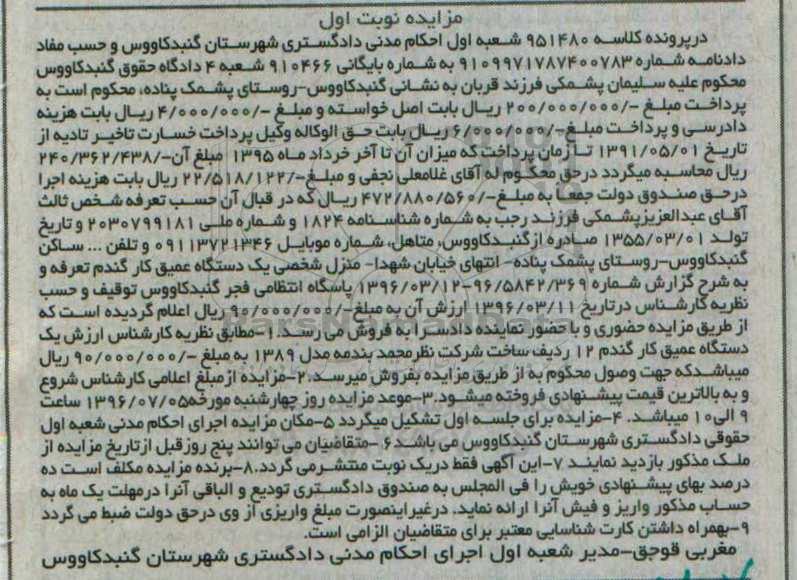 مزایده نوبت اول
درپرونده کلاسه ۹۵۱۴۸۰ شعبه اول احکام مدنی دادگستری شهرستان گنبدکاووس و حسب مفاد
دادنامه شماره ۹۱۰۹۹۷۱۷۸۷۴۰۰۷۸۳ به شماره بایگانی ۹۱۰۴۶۶ شعبه ۴ دادگاه حقوق گنبدکاووس
محکوم علیه سلیمان پشمکی فرزند قربان به نشانی گنبدکاووس-روستای پشمک پناده، محکوم است به
پرداخت مبلغ -/۲۰۰/۰۰۰/۰۰۰ ریال بابت اصل خواسته و مبلغ -/۴/۰۰۰/۰۰۰ ریال بابت هزینه
دادرسی و پرداخت مبلغ-/۶/۰۰۰/۰۰۰ ریال بابت حق الوکاله وکیل پرداخت خسارت تاخیر تادیه از
تاریخ ۱۳۹۱/۰۵/۰۱ تا زمان پرداخت که میزان آن تا آخر خرداد ماه ۱۳۹۵ مبلغ آن-/۲۴۰/۳۶۲/۴۳۸
ریال محاسبه میگردد درحق محکوم له آقای غلامعلی نجفی و مبلغ-/۲۲/۵۱۸/۱۲۲ ریال بابت هزینه اجرا
درحق صندوق دولت جمعا به مبلغ-/۴۷۲/۸۸۰/۵۶۰ ریال که در قبال آن حسب تعرفه شخص ثالث
آقای عبدالعزیزپشمکی فرزند رجب به شماره شناسنامه ۱۸۲۴ و شماره ملی ۲۰۳۰۷۹۹۱۸۱ و تاریخ
تولد ۱۳۵۵/۰۳/۰۱ صادره ازگنبدکاووس، متاهل، شماره موبایل ۰۹۱۱۳۷۲۱۳۴۶ و تلفن ... ساکن
گنبدکاووس-روستای پشمک پناده- انتهای خیابان شهدا- منزل شخصی یک دستگاه عمیق کار گندم تعرفه و
به شرح گزارش شماره ۹۶/۵۸۴۲/۳۶۹-۱۳۹۶/۰۳/۱۲ پاسگاه انتظامی فجر گنبدکاووس توقیف و حسب
نظریه کارشناس درتاریخ ۱۳۹۶/۰۳/۱۱ ارزش آن به مبلغ-/۹۰/۰۰۰/۰۰۰ ریال اعلام گردیده است که
از طریق مزایده حضوری و باحضور نماینده دادسرا به فروش می رسد.۱-مطابق نظریه کارشناس ارزش یک
دستگاه عمیق کار گندم ۱۲ ردیف ساخت شرکت نظرمحمد بندمه مدل ۱۳۸۹ به مبلغ -/۹۰/۰۰۰/۰۰۰ ریال
میباشدکه جهت وصول محکوم به از طریق مزایده بفروش میرسد.۲-مزایده ازمبلغ اعلامی کارشناس شروع
و به بالاترین قیمت پیشنهادی فروخته میشود.۳-موعد مزایده روز چهارشنبه مورخه۱۳۹۶/۰۷/۰۵ ساعت
۹ الی۱۰ میباشد. ۴-مزایده برای جلسه اول تشکیل میگردد ۵-مکان مزایده اجرای احکام مدنی شعبه اول
حقوقی دادگستری شهرستان گنبدکاووس می باشد۶ -متقاضیان می توانند پنج روزقبل ازتاریخ مزایده از
ملک مذکور بازدید نمایند ۷-این آگهی فقط دریک نوبت منتشرمی گردد.۸-برنده مزایده مکلف است ده
درصد بهای پیشنهادی خویش را فی المجلس به صندوق دادگستری تودیع و الباقی آنرا درمهلت یک ماه به
حساب مذکور واریز و فیش آنرا ارائه نماید. درغیراینصورت مبلغ واریزی از وی درحق دولت ضبط می گردد
۹-بهمراه داشتن کارت شناسایی معتبر برای متقاضیان الزامی است.
مغربی قوجق-مدیر شعبه اول اجرای احکام مدنی دادگستری شهرستان گنبدکاووس